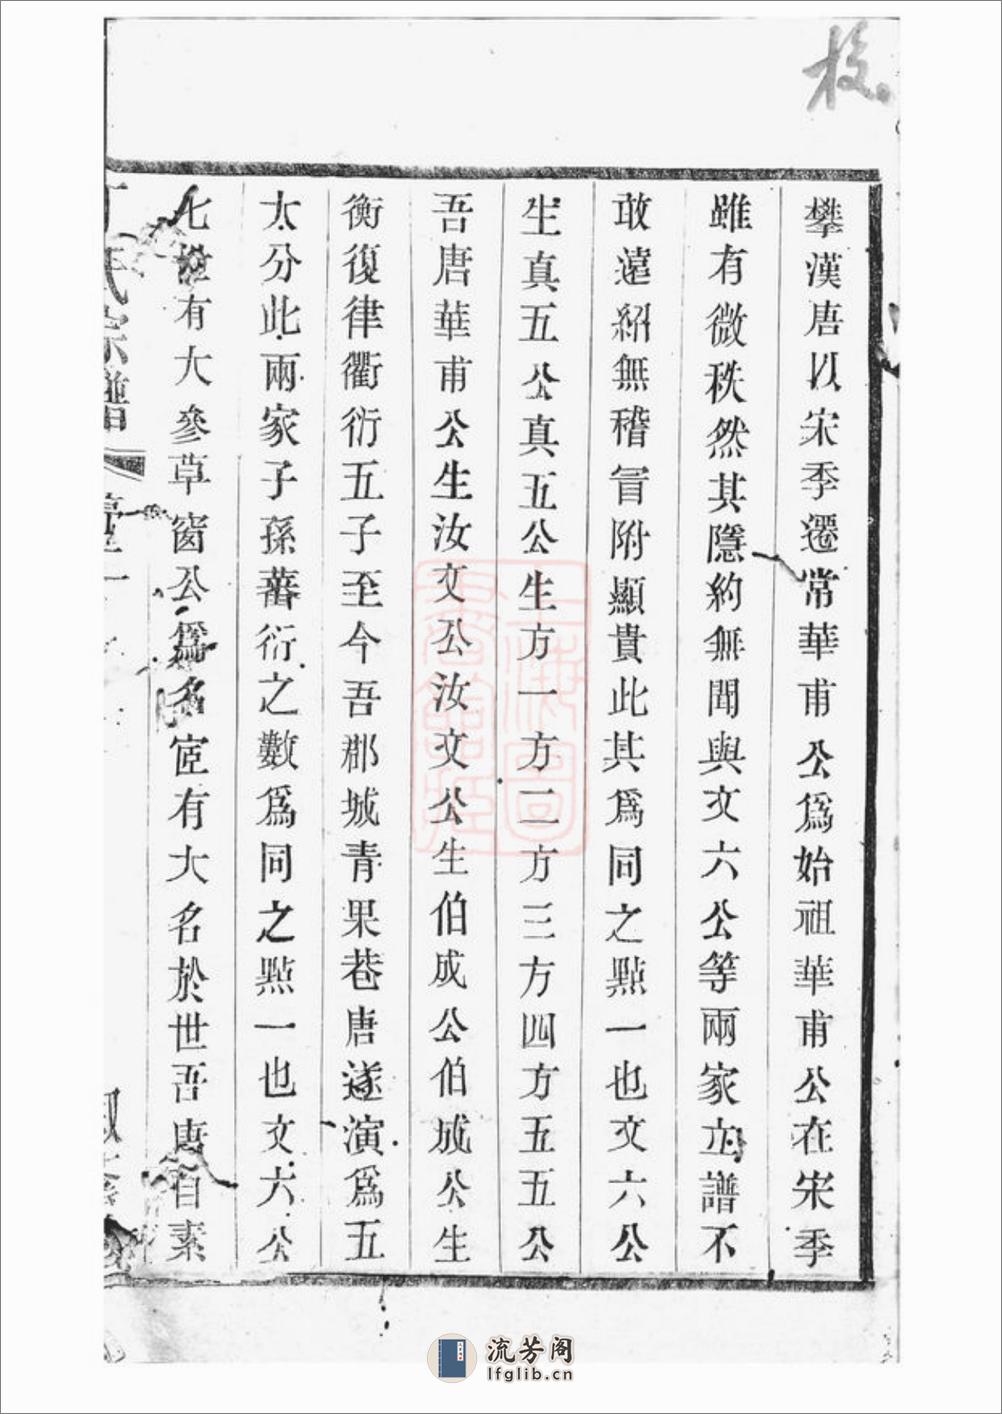 校
攀漢唐以宋季遷常華甫公爲始祖華甫公在宋季
雖有微秩然其隱約無聞與文六公等兩家立譜不
敢遠紹無稽冒附顯貴此其爲同之㸃一也文六公
生真五公真五公生方一方二方三方四方五五公
吾唐華甫公生汝文公汝文公生伯成公伯成公生
衡復律衢衍五子至今吾郡城青果巷唐遂演爲五
太分此兩家子孫蕃衍之數爲同之㸃一也文六公
七世有大參草窗公爲名宦有大名於世吾唐自素
氏宗譜
上海圖書館藏
流芳阁
lfglib.cn